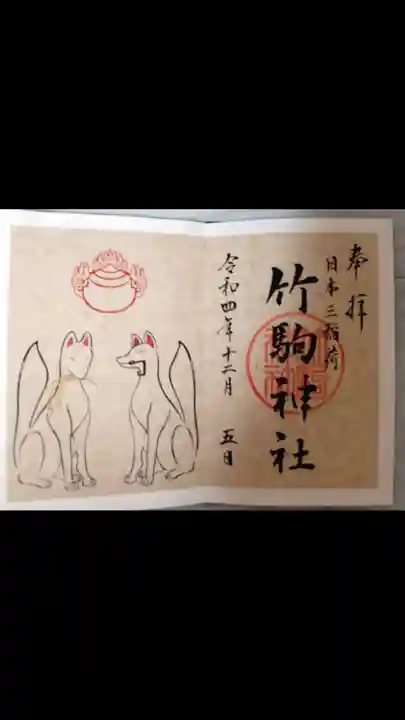 奉拝
日本三稲荷
竹駒神社
令和四年十二月 五日